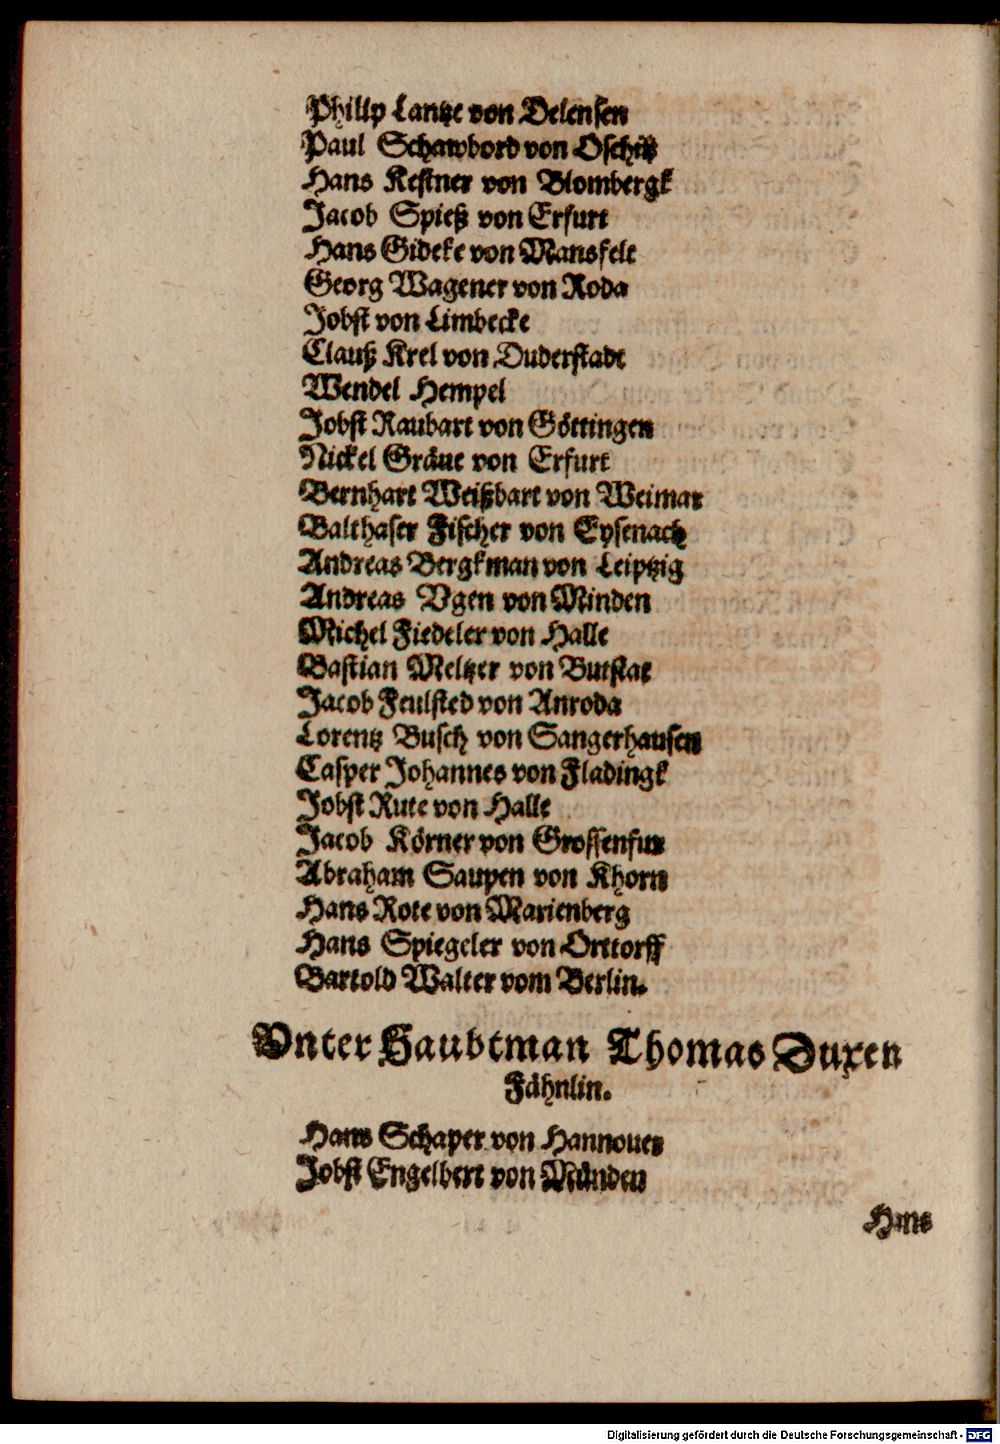 Philip Lantze von Delensen
Paul Schawbord von Oschitz
Hans Kestner von Blombergk
Jacob Spieß von Erfurt
Hans Gideke von Mansfelt
Georg Wagener von Roda
Jobst von Limbecke
Clauß Krel von Duderstadt
Wendel Hempel
Jobst Raubart von Göttingen
Nickel Gräue von Erfurt
Bernhart Weißbart von Weimar
Balthaser Fischer von Eysenach
Andreas Bergkman von Leiptzig
Andreas Vgen von Minden
Michel Fiedeler von Halle
Bastian Meltzer von Butstat
Jacob Feulsted von Anroda
Lorentz Busch von Sangerhausen
Casper Johannes von Fladingk
Jobst Rute von Halle
Jacob Körner von Grossenfur
Abraham Saupen von Khorn
Hans Rote von Marienberg
Hans Spiegeler von Orttorff
Bartold Walter vom Berlin.
Vnter Haubtman Thomas Duxen
Fähnlin.
Hans Schaper von Hannouer
Jobst Engelbert von Münden
Hans
Digitalisierung gefördert durch die Deutsche Forschungsgemeinschaft - DFG